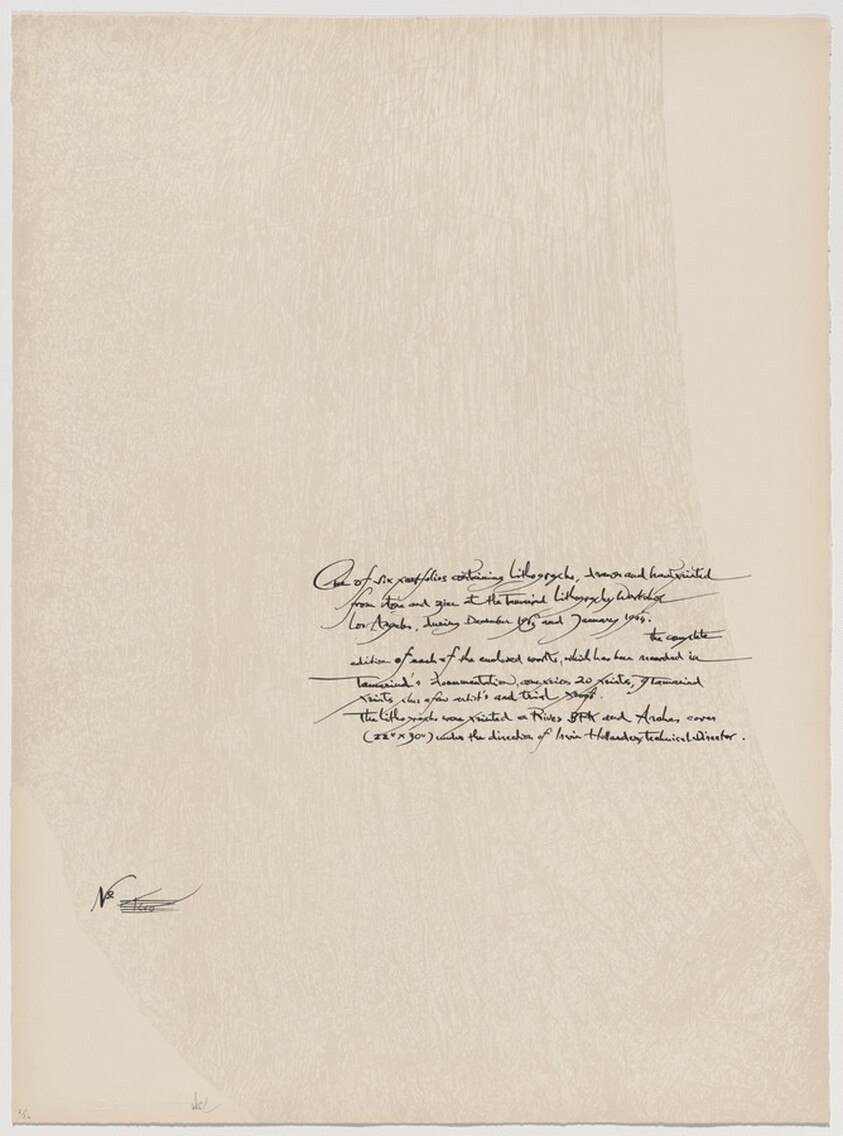 One of six portfolios containing lithographs, drawn and handprinted
from stone and zinc at the Tamarind Lithography Workshop
Los Angeles, during December 1963 and January 1964.
the complete
edition of each of the enclosed works, which has been recorded in
Tamarind's Documentation, comprises 20 prints, 9 Tamarind
prints plus a few artist's and trial proofs.
The lithographs were printed on Rives BFK and Arches cover
(22" x 30") under the direction of Irwin Hollander, Technical Director.
Nº two